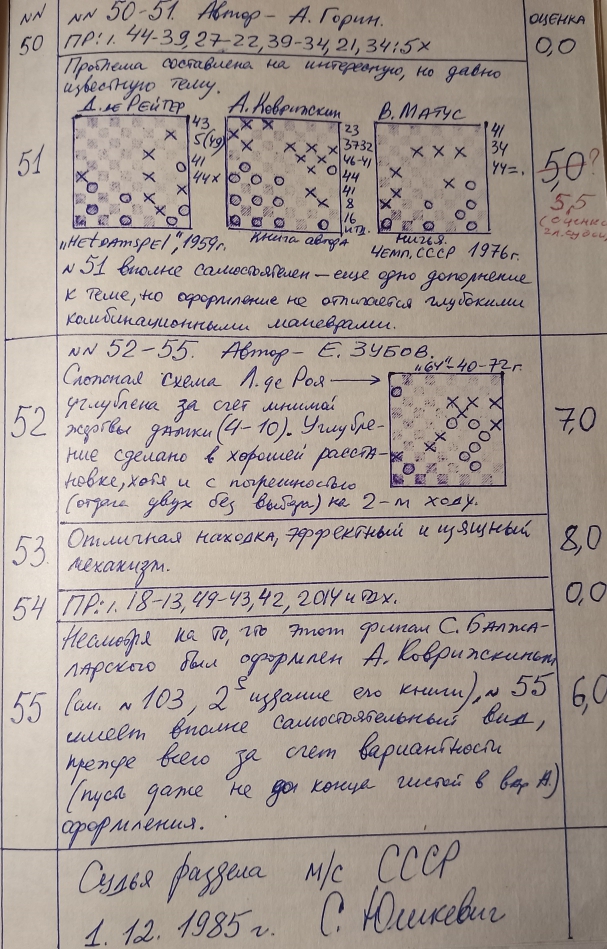 NN
NN 50-51. Автор - А. Горин.
ОЦЕНКА
50
ПР: 1. 44-39, 27-22, 39-34, 21, 34:5x
0,0
Проблема составлена на интересную, но давно
известную тему.
Д. де РЕЙТЕР
А. Коврижкин
В. МАТУС
43
5(49)
41
44x
23
3732
46-41
44
41
8
16
и т.д.
41
34
44=.
51
5,0?
5,5
(оценка
гл. судьи)
"HET DAMSPEL", 1959г.
Книга автора
Ничья.
ЧЕМП. СССР 1976г.
N 51 вполне самостоятелен - еще одно дополнение
к теме, но оформление не отличается глубокими
комбинационными маневрами.
NN 52-55. Автор - Е. ЗУБОВ.
"64"-40-72г.
Сложная схема Л. де Роя
52
углублена за счет мнимой
7,0
жертвы дамки (4-10). Углубле-
ние сделано в хорошей расста-
новке, хотя и с погрешностью
(отдача двух без выбора) на 2-м ходу.
53
Отличная находка, эффектный и изящный
механизм.
8,0
54
ПР: 1. 18-13, 49-43, 42, 20 14 и т.д. x.
0,0
Несмотря на то, что этот финал С. БАЛЖА-
ЛАРСКОГО был оформлен А. Коврижкиным
55
(см. N 103, 2 издание его книги), N 55
6,0
имеет вполне самостоятельный вид,
прежде всего за счет вариантности
(пусть даже не до конца чистой в вар А.)
оформления.
Судья раздела м/с СССР
1. 12. 1985г. С. Юшкевич